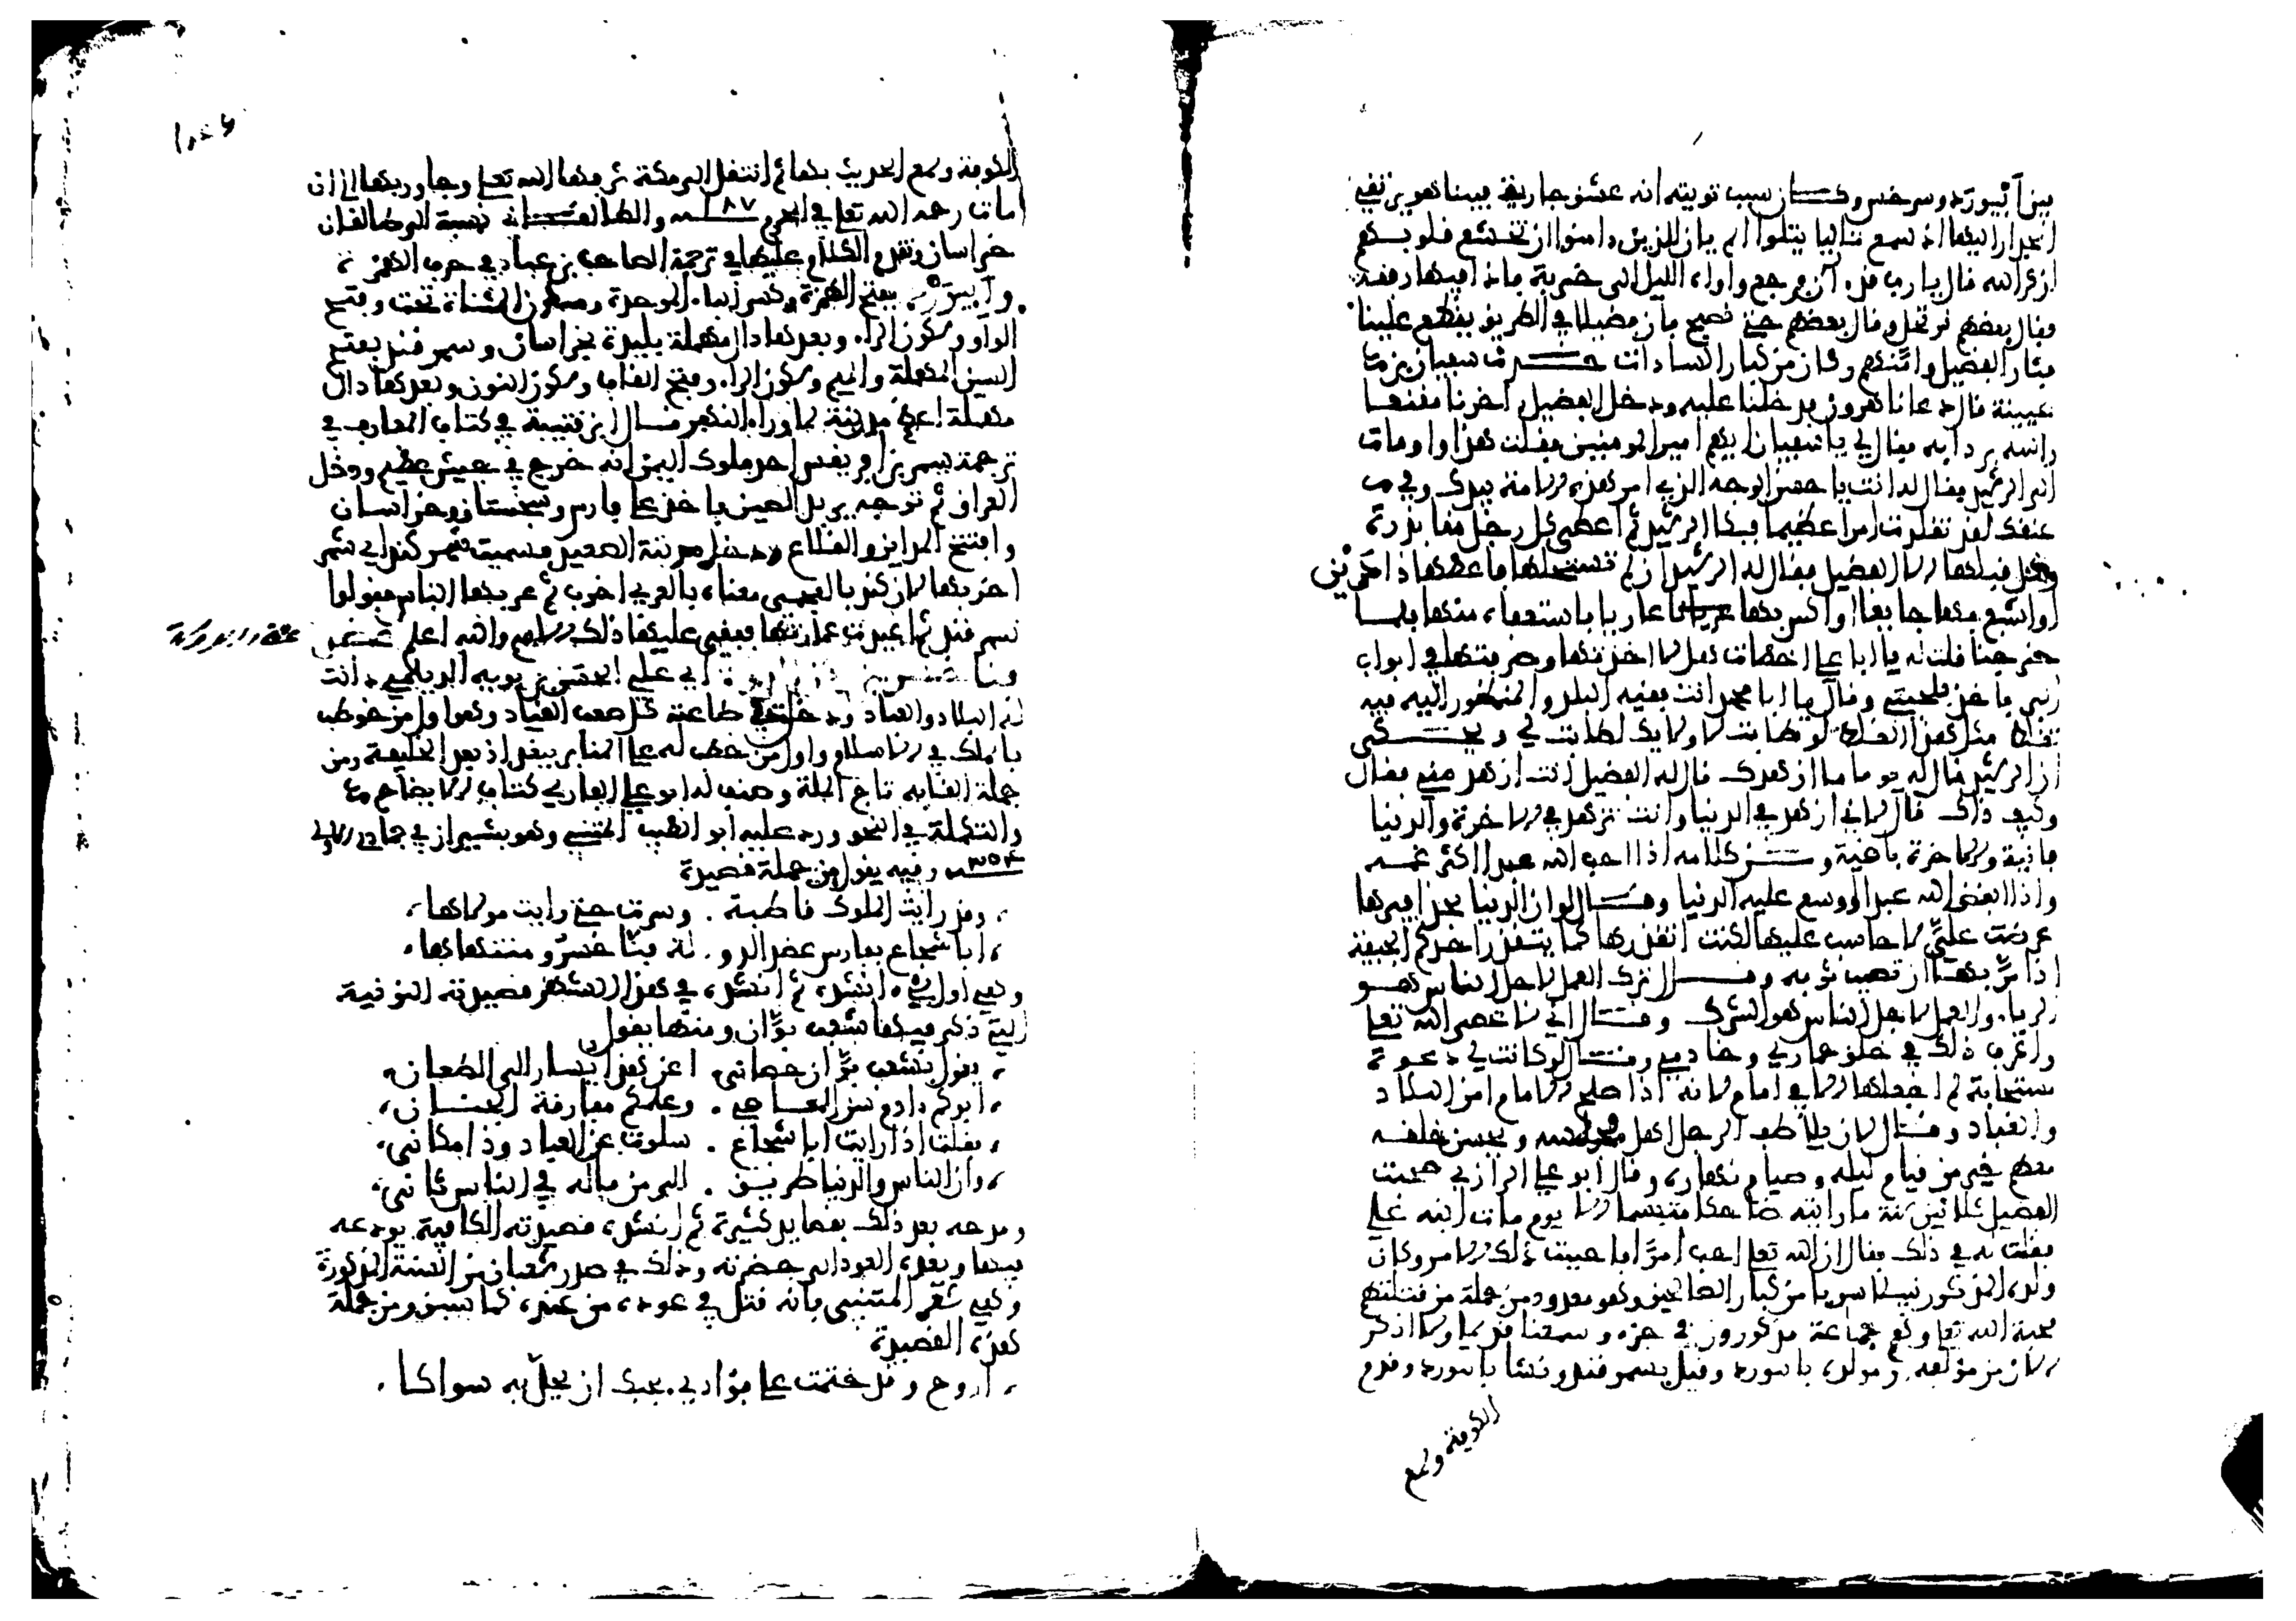 بين أبيورد وسرخس وكان سبب توبته انه عشق جارية فبينا هو يرتقي
الجدار اليها اذ سمع تاليا يتلوا الم يان للذين ءامنوا ان تخشع قلوبهم
لذكر الله فقال يا رب قد ءان فرجع وءاواه الليل الى خربة فاذا فيها رفقة
فقال بعضهم نرتحل وقال بعضهم حتى نصبح فان فضيلا في الطريق يقطع علينا
فتاب الفضيل وامنهم وكان من كبار السادات حدث سفيان بن
عيينة قال دعانا هرون فدخلنا عليه ودخل الفضيل اخرنا مقنعا
راسه بردايه فقال لي يا سفيان ايهم امير المومنين فقلت هذا واومات
الى الرشيد فقال له انت يا حسن الوجه الذي امر هذه الامة بيدك وفي
عنقك لقد تقلدت امرا عظيما فبكا الرشيد ثم اعطى كل رجل منا بدرة
وكل قبلها الا الفضيل فقال له الرشيد ان لم تستحلها فاعطها ذا دين
او اشبع بها جايعا او اكس بها عاريا فاستعفاه منها فلما
خرجنا قلت له يا ابا علي اخطات هلا اخذتها وصرفتها في ابواب
البر فاخذ بلحيتي وقال يا ابا محمد انت فقيه البلد والمنظور اليه فيه
تغلط مثل هذا الغلط لو طابت لاولايك لطابت لي ويحكى
ان الرشيد قال له يوما ما ازهدك قال له الفضيل انت ازهد مني فقال
وكيف ذاك قال لاني ازهد في الدنيا وانت تزهد في الاخرة والدنيا
فانية والاخرة باقية ومن كلامه اذا احب الله عبدا اكثر غمه
واذا ابغض الله عبدا اوسع عليه الدنيا وقال لو ان الدنيا بحذافيرها
عرضت علي لا احاسب عليها لكنت اتقذرها كما يتقذر احدكم الجيفة
اذا مر بها ان تصيب ثوبه وقال ترك العمل لاجل الناس هو
الريا والعمل لاجل الناس هو الشرك وقال اني لاعصي الله تعلى
واعرف ذلك في خلق حماري وخادمي وقال لو كانت لي دعوة
مستجابة لم اجعلها الا في امام لانه اذا صلح الامام امن البلاد
والعباد وقال لان يلاطف الرجل اهل مجلسه ويحسن خلقه
معهم خير من قيام ليله وصيام نهاره وقال ابو علي الرازي صحبت
الفضيل ثلاثين سنة ما رايته ضاحكا متبسما الا يوم مات ابنه علي
فقلت له في ذلك فقال ان الله تعلى احب امرا فاحببت ذلك الامر وكان
ولده المذكور نبيلا سريا من كبار الصالحين وهو معدود من جملة من قتلتهم
محبة الله تعلى وهم جماعة مذكورون في جزء وسمعنا قديما ولا اذكر
الان من مؤلفه ومولده بابيورد وقيل بسمرقند ونشا بابيورد وقدم
الكوفة وسمع
الكوفة وسمع الحديث بها ثم انتقل الى مكة شرفها الله تعلى وجاور بها الى ان
مات رحمه الله تعلى في المحرم ١٨٧ والطالقاني نسبة الى طالقان
خراسان وتقدم الكلام عليها في ترجمة الصاحب بن عباد في حرف الهمزة
وأبيورد بفتح الهمزة وكسر الباء الموحدة وسكون المثناة تحت وفتح
الواو وسكون الراء وبعدها دال مهملة بليدة بخراسان وسمرقند بفتح
السين المهملة والميم وسكون الراء وفتح القاف وسكون النون وبعدها دال
مهملة اعظم مدينة بما وراء النهر قال ابن قتيبة في كتاب المعارف في
ترجمة شمر بن افريقس احد ملوك اليمن انه خرج في جيش عظيم ودخل
العراق ثم توجه يريد الصين فاخذ على فارس وسجستان وخراسان
وافتتح المداين والقلاع ودخل مدينة الصغد فسميت شمر كند اي شمر
اخربها لان كند بالعجمي معناه بالعربي اخرب ثم عربها الناس فقالوا
سمرقند ثم اعيدت عمارتها فبقي عليها ذلك الاسم والله اعلم
ابي علي الحسن بن بويه الديلمي دانت
له البلاد والعباد ودخل في طاعته كل صعب القياد وهو اول من خوطب
بالملك في الاسلام واول من خطب له على المنابر ببغداذ بعد الخليفة ومن
جملة القابه تاج الملة وصنف له ابو علي الفارسي كتاب الايضاح
والتكملة في النحو وورد عليه ابو الطيب المتنبي وهو بشيراز في جمادى الاولى
٣٥٤ وفيه يقول من جملة قصيدة
وقد رايت الملوك قاطبة . وسرت حتى رايت مولاها
ابا شجاع بفارس عضد الدو . لة فنا خسرو شهنشاها
وهي اول شيء انشده ثم انشده في هذا الشهر قصيدته النونية
التي ذكر فيها شعب بوان ومنها يقول
يقول بشعب بوان حصاني اعن هذا يسار الى الطعان
ابوكم ءادم سن المعاصي . وعلمكم مفارقة الجنان
فقلت اذا رايت ابا شجاع . سلوت عن العباد وذا المكاني
وان الناس والدنيا طريق . الى من ماله في الناس ثاني
ومدحه بعد ذلك بقصايد كثيرة ثم انشده قصيدته الكافية يودعه
فيها ويعده العود الى حضرته وذلك في صدر شعبان من السنة المذكورة
وهي شعر المتنبي فانه قتل في عوده من عنده كما سبق ومن جملة
هذه القصيدة
اروح وقد ختمت على فؤادي . بحبك ان يحل به سواكا